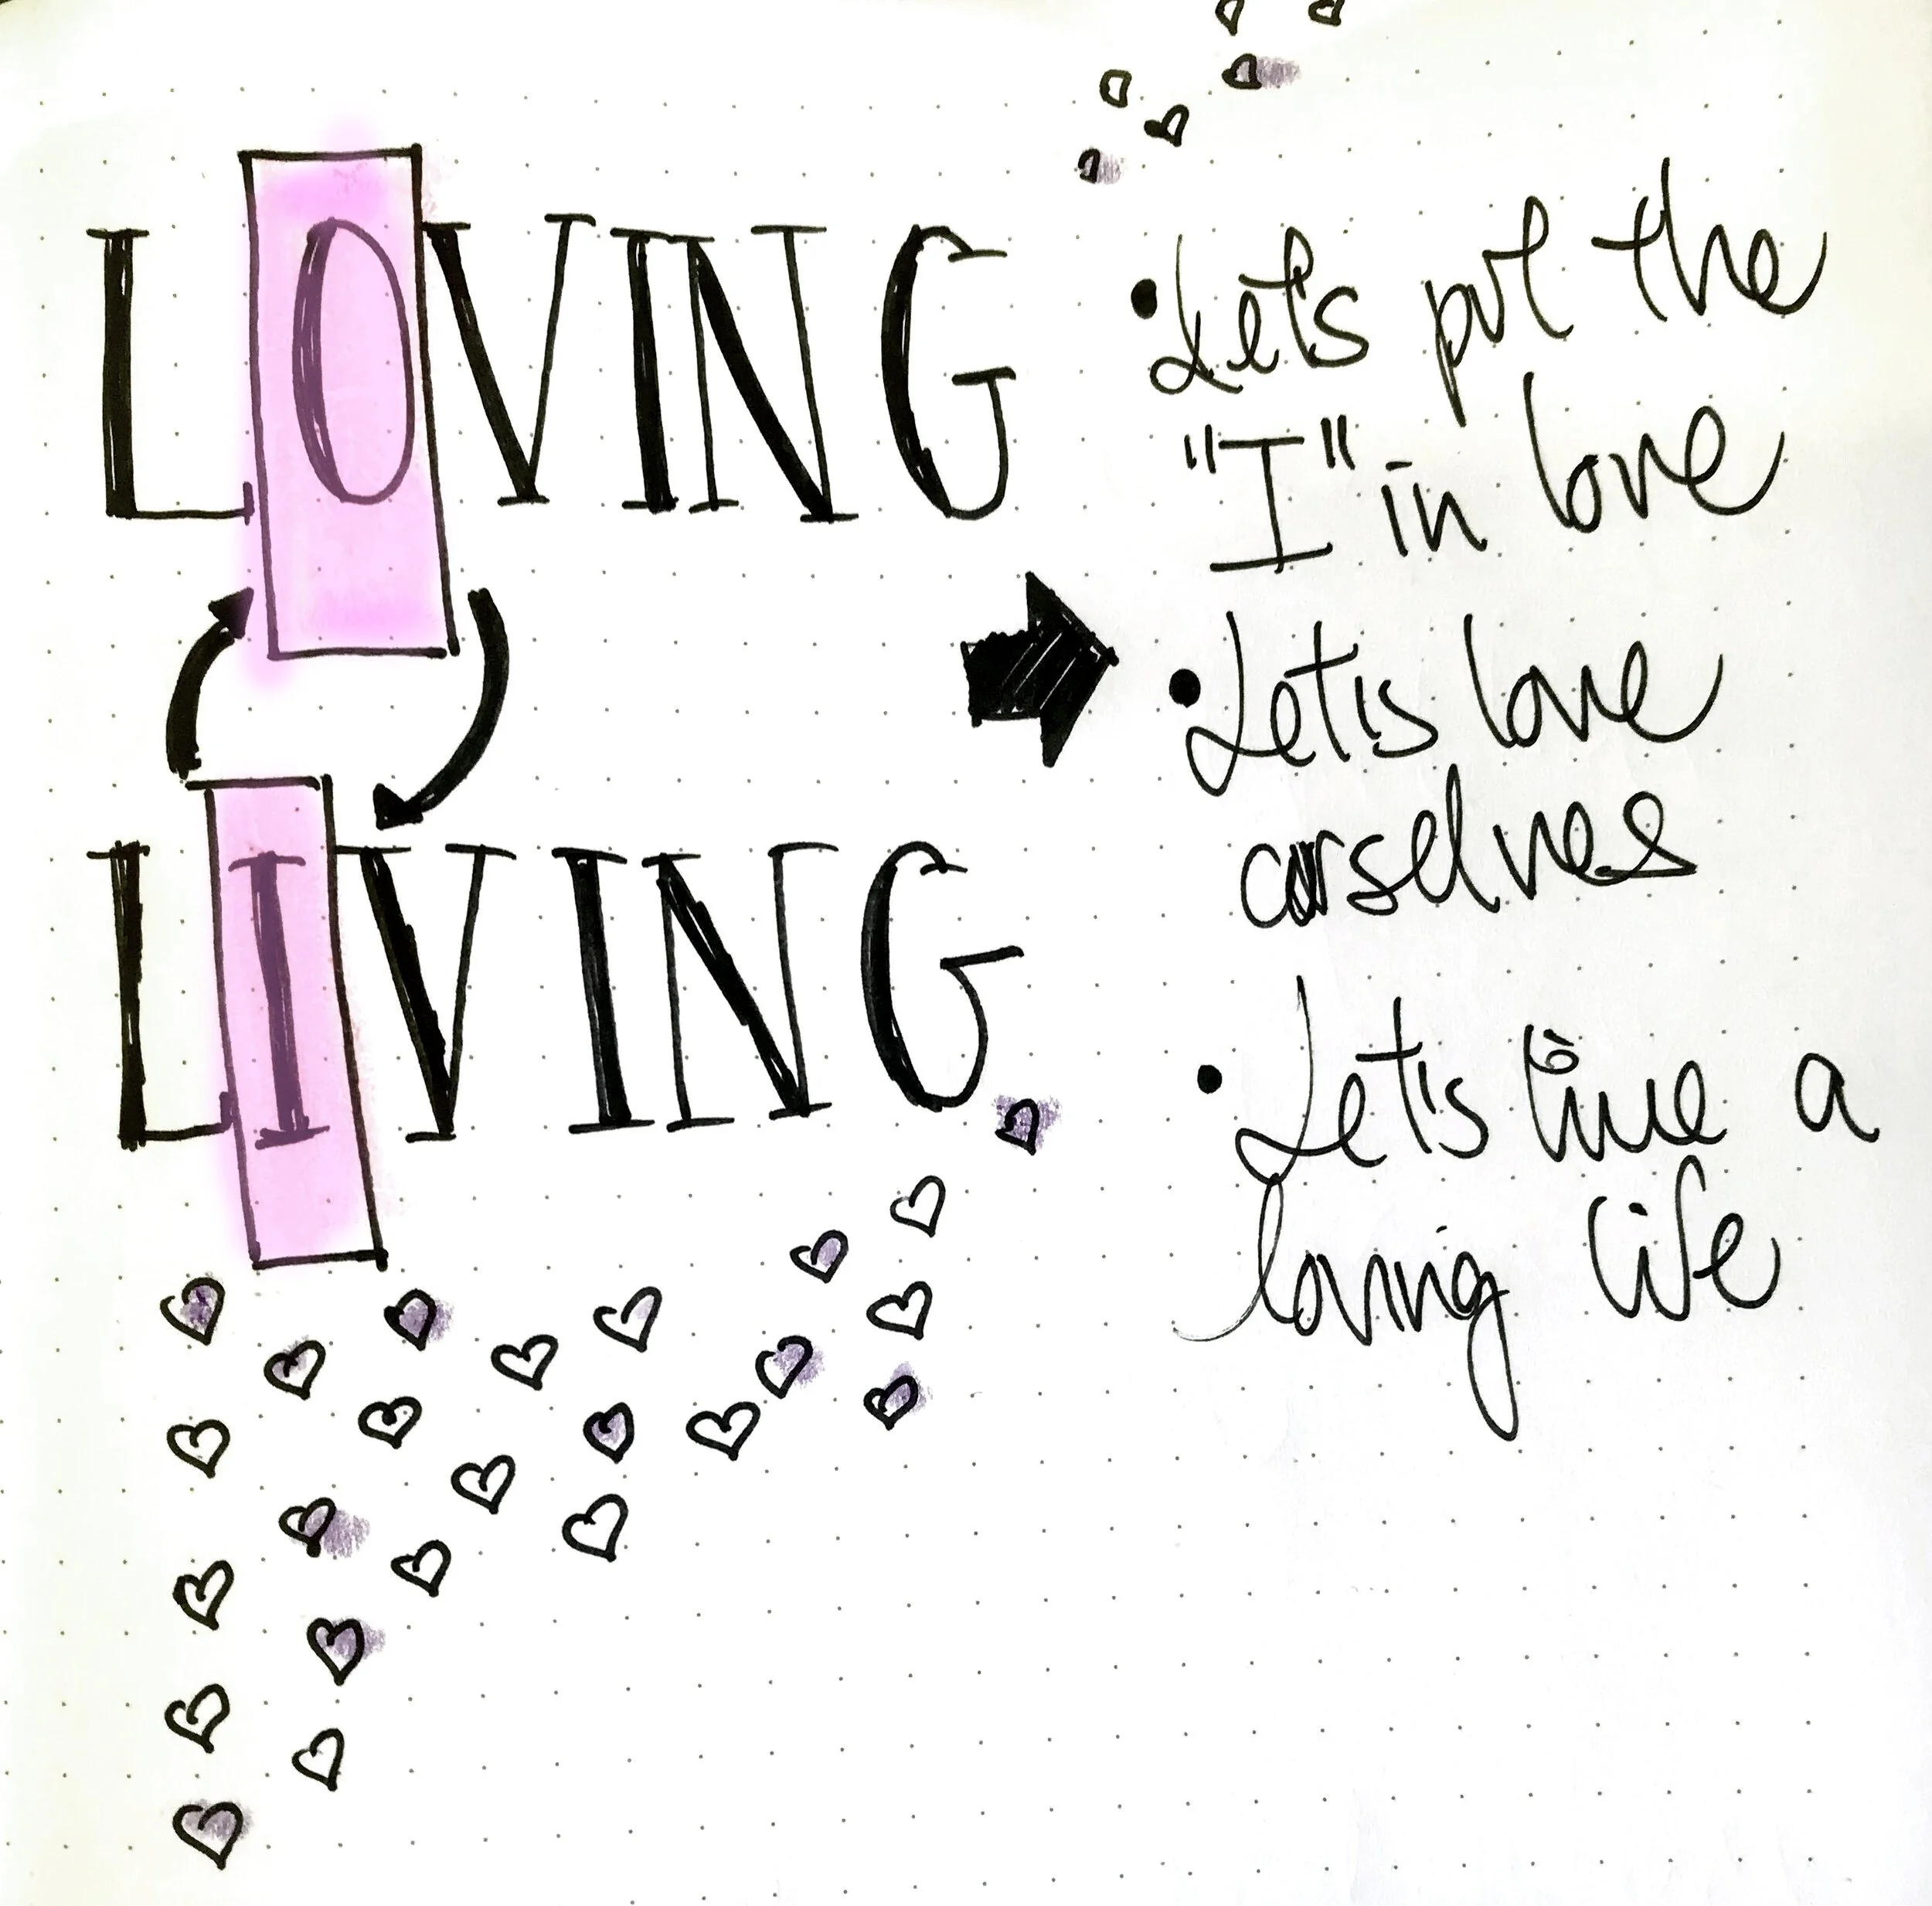 LOVING
LIVING
•Let's put the
"I" in love
•Let's love
ourselves
•Let's live a
loving life